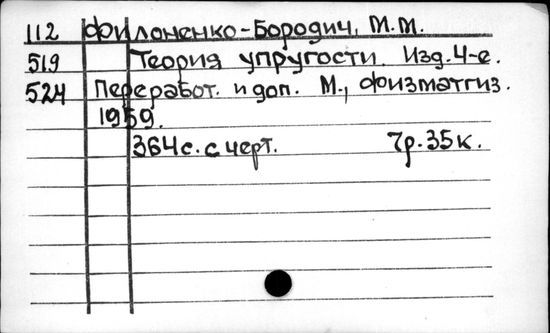 112 Филоненко-Бородич, М.М.
519 Теория упругости. Изд. 4-е.
524 Переработ. и доп. М., Физматгиз.
1959.
364с. с черт. 7р. 35к.